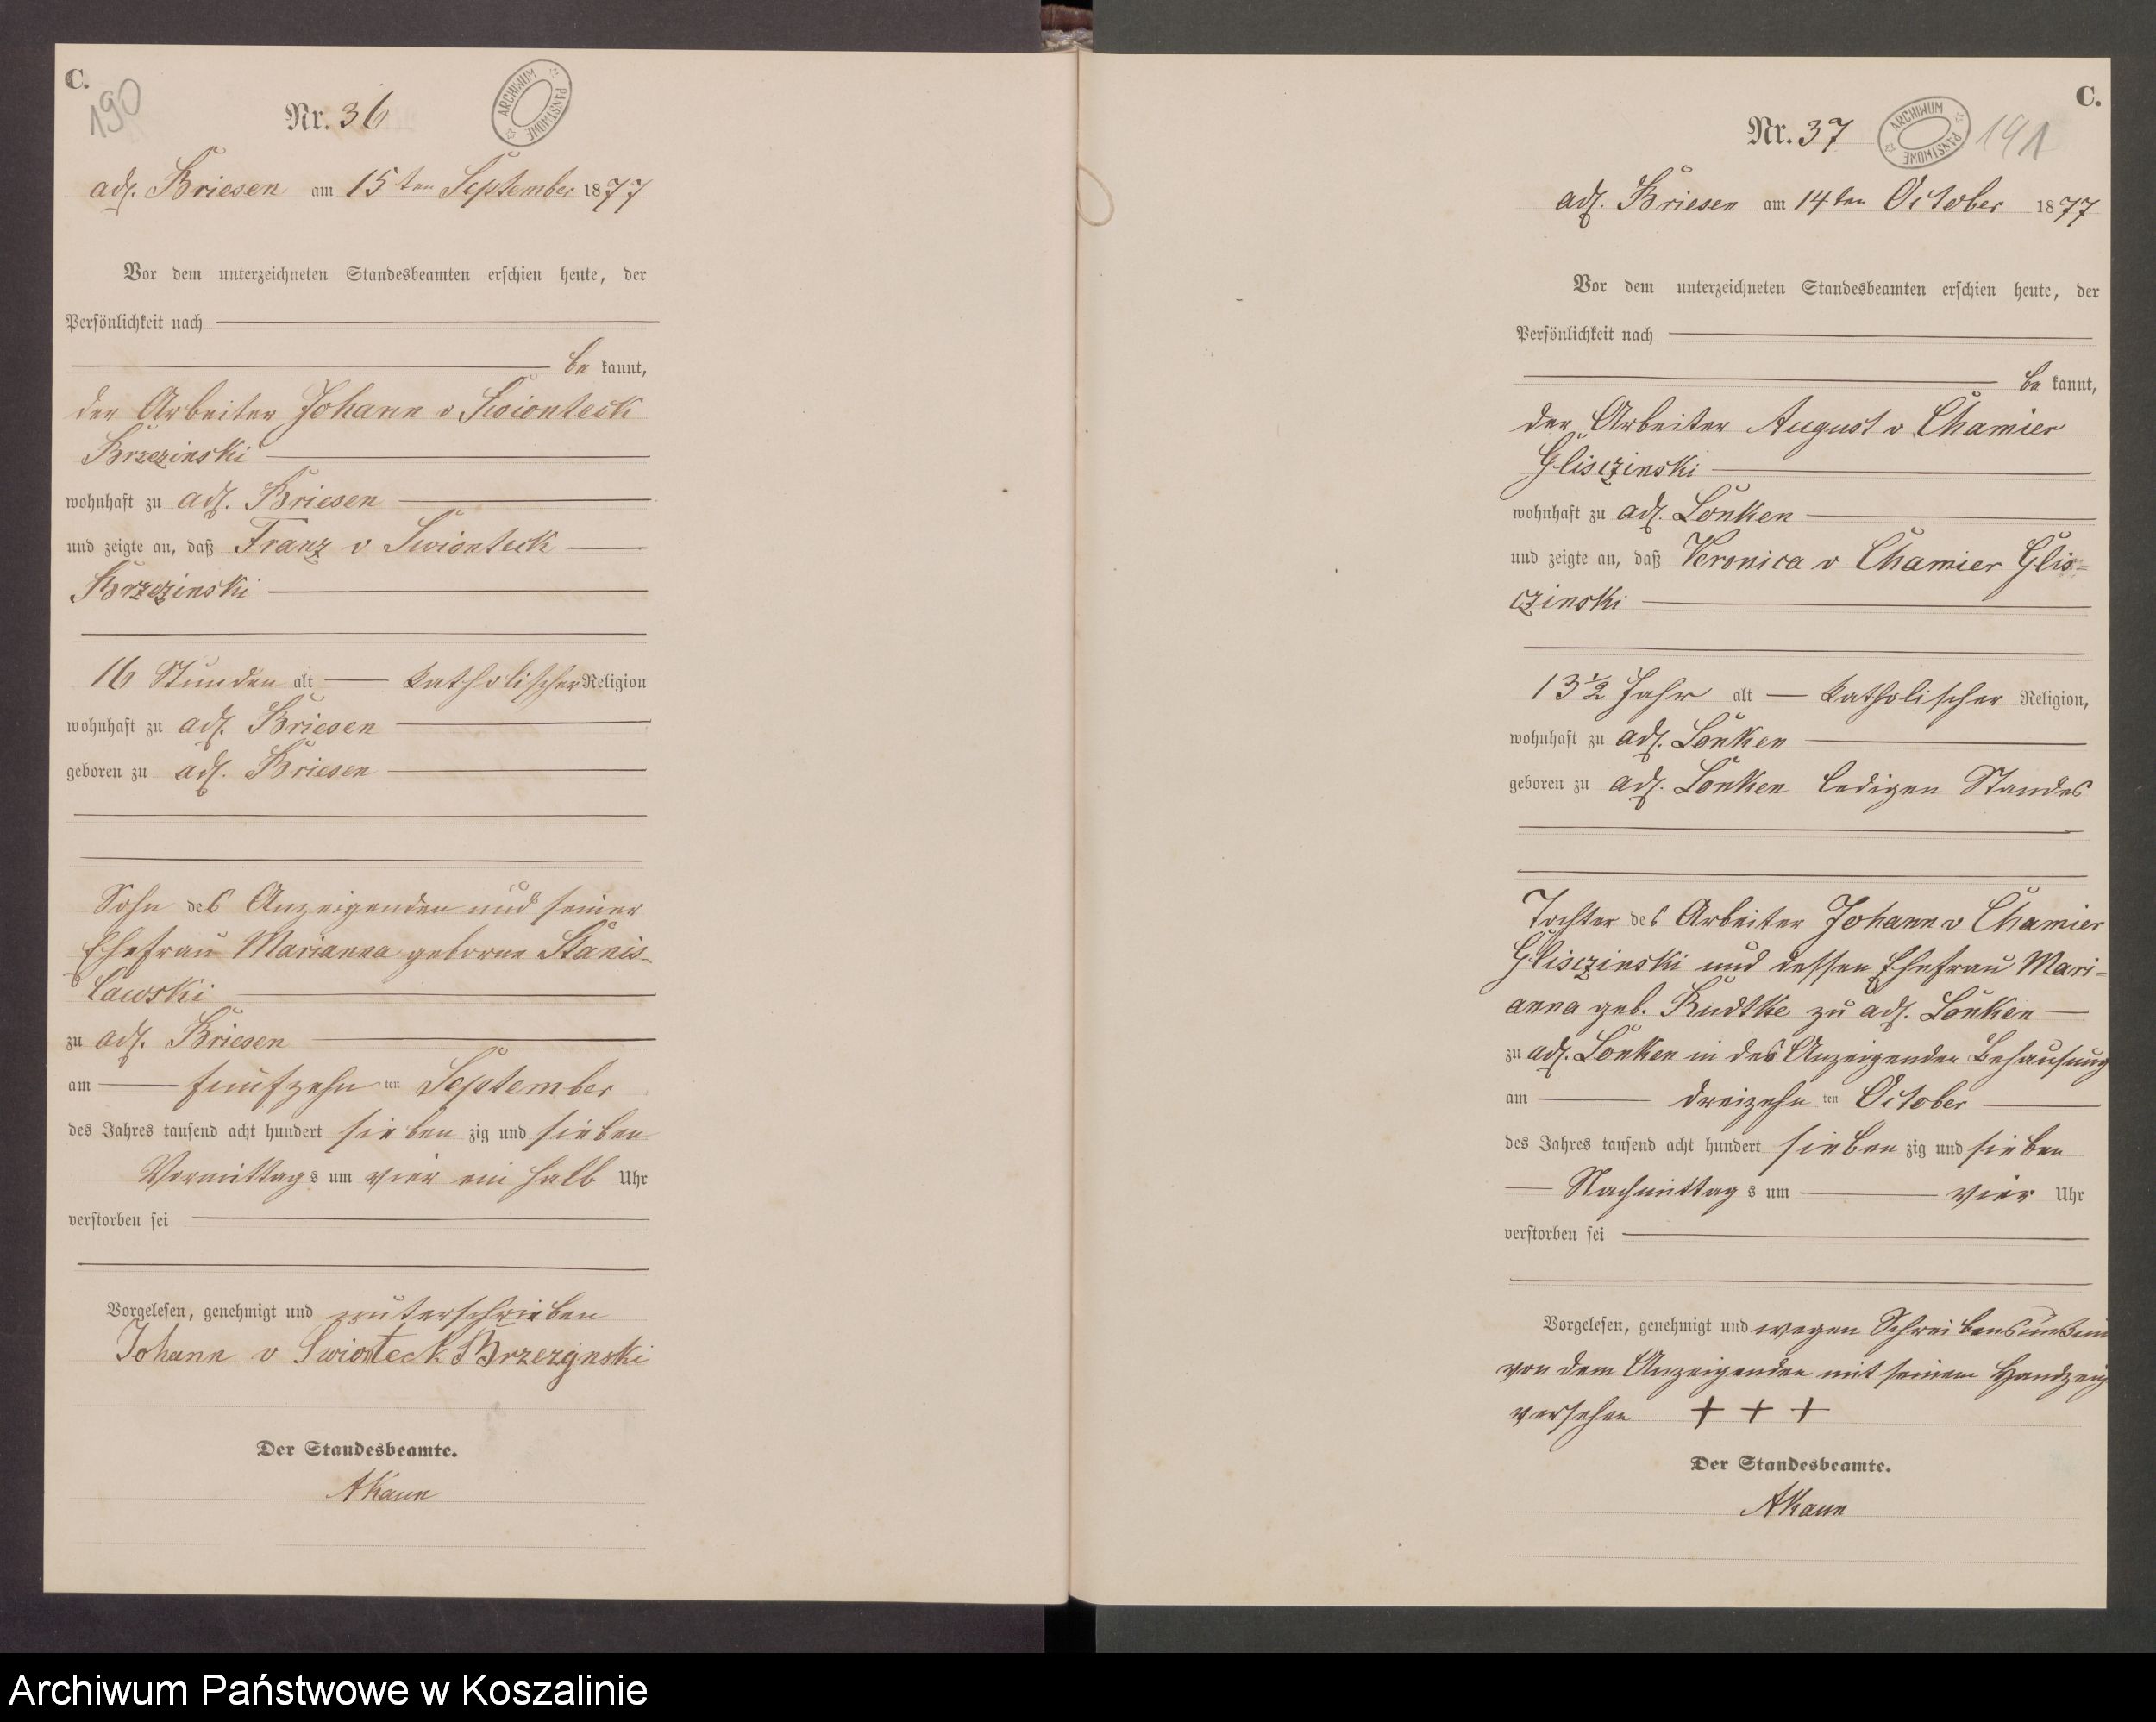 C.
190
Nr. 36
ARCHIWUM PAŃSTWOWE
adl. Briesen am 15ten September 1877
Vor dem unterzeichneten Standesbeamten erschien heute, der
Persönlichkeit nach
be kannt,
der Arbeiter Johann v Swionteck
Brzezinski
wohnhaft zu adl. Briesen
und zeigte an, daß Franz v Swionteck
Brzezinski
16 Stunden alt katholischer Religion
wohnhaft zu adl. Briesen
geboren zu adl. Briesen
Sohn des Anzeigenden und seiner
Ehefrau Marianna geborne Stanis-
lawski
zu adl. Briesen
am fünfzehn ten September
des Jahres tausend acht hundert sieben zig und sieben
Vormittag s um vier ein halb Uhr
verstorben sei
Vorgelesen, genehmigt und unterschrieben
Johann v Swionteck Brzezynski
Der Standesbeamte.
AKaun
C.
Nr. 37
ARCHIWUM PAŃSTWOWE
191
adl. Briesen am 14ten October 1877
Vor dem unterzeichneten Standesbeamten erschien heute, der
Persönlichkeit nach
be kannt,
der Arbeiter August v Chamier
Glisczinski
wohnhaft zu adl. Lonken
und zeigte an, daß Veronica v Chamier Glis=
czinski
13½ Jahr alt katholischer Religion,
wohnhaft zu adl. Lonken
geboren zu adl. Lonken ledigen Standes
Tochter des Arbeiter Johann v Chamier
Glisczinski und dessen Ehefrau Mari=
anna geb. Rudtke zu adl. Lonken
zu adl. Lonken in des Anzeigenden Behausung
am dreizehn ten October
des Jahres tausend acht hundert sieben zig und sieben
Nachmittag s um vier Uhr
verstorben sei
Vorgelesen, genehmigt und wegen
von dem Anzeigenden mit seinem
versehen + + +
Der Standesbeamte.
AKaun
Archiwum Państwowe w Koszalinie